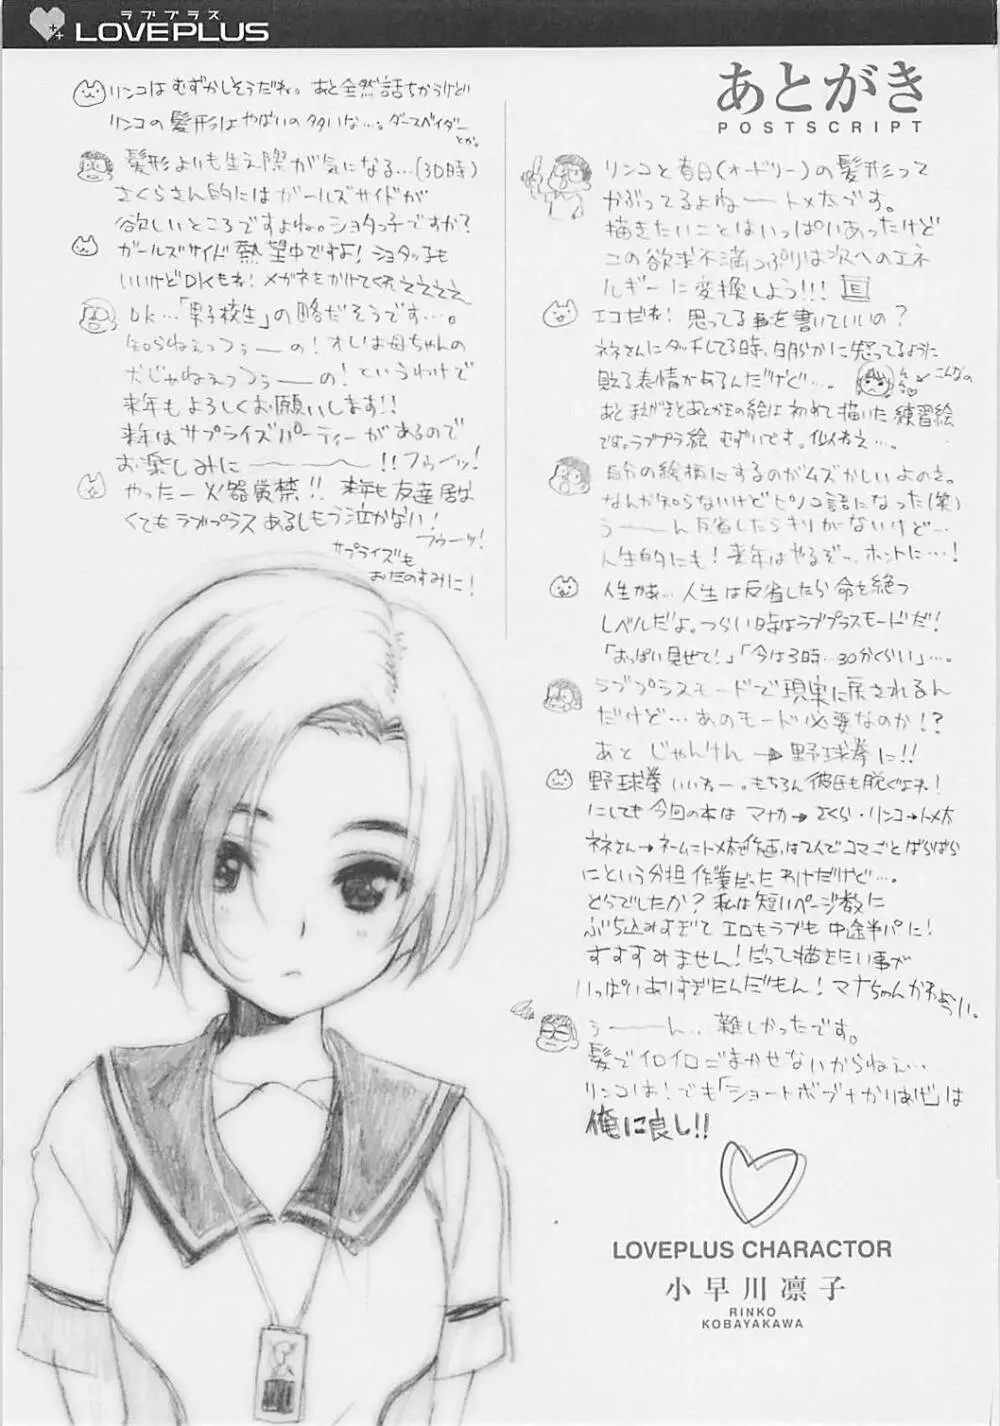 ラブプラス
LOVEPLUS
あとがき
POSTSCRIPT
リンコと春日(オードリー)の髪形って
かぶってるよねートメ太です。
描きたいことはいっぱいあったけど
この欲求不満っぷりは次へのエネ
ルギーに変換しよう!!!
エコだね! 思ってる事を書いていいの?
ネネさんにタッチしてる時、明らかに怒ってるように
見える表情があるんだけど…。
こんなの
あとまえがきとあとがきの絵は初めて描いた練習絵
です。ラブプラ絵 むずいです。似ねえ…。
自分の絵柄にするのがムズかしいよのさ。
なんか知らないけどピノコ語になった(笑)
うーーん反省したらキリがないけど…
人生的にも! 来年はやるぞー、ホントに…!
人生かぁ… 人生は反省したら命を絶つ
レベルだよ。つらい時はラブプラスモードだ!
「おっぱい見せて!」「今は3時…30分くらい」…。
ラブプラスモードで現実に戻されるん
だけど…あのモード必要なのか!?
あと じゃんけん → 野球拳に!!
野球拳いいねー。もちろん彼氏も脱ぐよね!
にしても今回の本は マナカ→さくら・リンコ→トメ太
ネネさん→ネームニトメ太 作画は2人でコマごとばらばら
にという分担作業だったわけだけど…。
どうでしたか? 私は短いページ数に
ぶち込みすぎて エロもラブも 中途半パに!
すすすみません! だって描きたい事が
いっぱいありすぎたんだもん! マナちゃんかわようい。
うーーん… 難しかったです。
髪でイロイロごまかせないからねぇ…
リンコは! でも「ショートボブ+かりあげ」は
俺に良し!!
リンコはむずかしそうだね。あと全然話ちがうけど
リンコの髪形はやばいの多いな…。ダースベイダー
とか。
髪形よりも生え際が気になる…(3D時)
さくらさん的にはガールズサイドが
欲しいところですよね。ショタっ子ですか?
ガールズサイド熱望中ですよ! ショタっ子も
いいけどDKもね! メガネをかけてくれええええ
DK…「男子校生」の略だそうです…。
知らねえっつぅーの! オレは母ちゃんの
犬じゃねえっつぅーの! というわけで
来年もよろしくお願いします!!
来年はサプライズパーティーがあるので
お楽しみに〜〜〜!! フゥーッ!
やったー火器厳禁!! 来年も友達居な
くてもラブプラスあるしもう泣かない!
フゥーッ!
サプライズも
おたのすみに!
LOVEPLUS CHARACTOR
小早川凛子
RINKO
KOBAYAKAWA